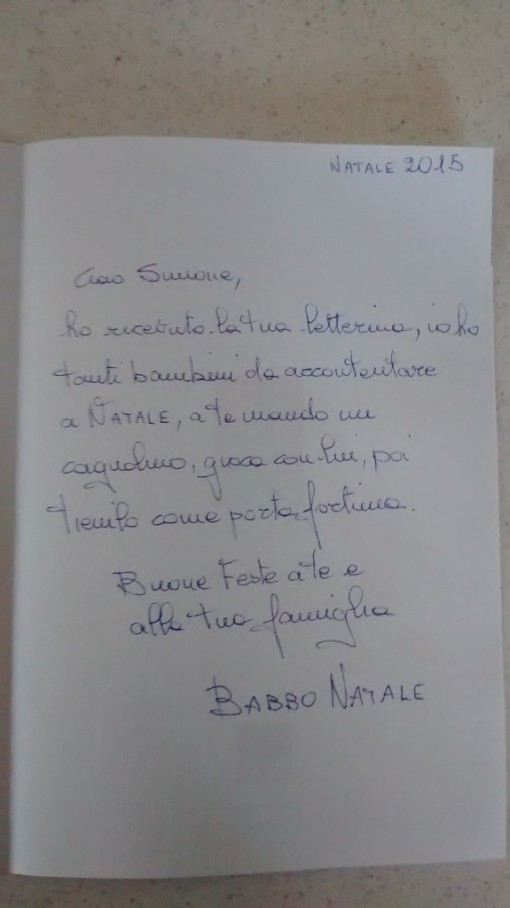 NATALE 2015
Ciao Simone,
ho ricevuto la tua letterina, io ho
tanti bambini da accontentare
a NATALE, a te mando un
cagnolino, gioca con lui, poi
tienilo come porta fortuna.
Buone Feste a te e
alla tua famiglia
BABBO NATALE